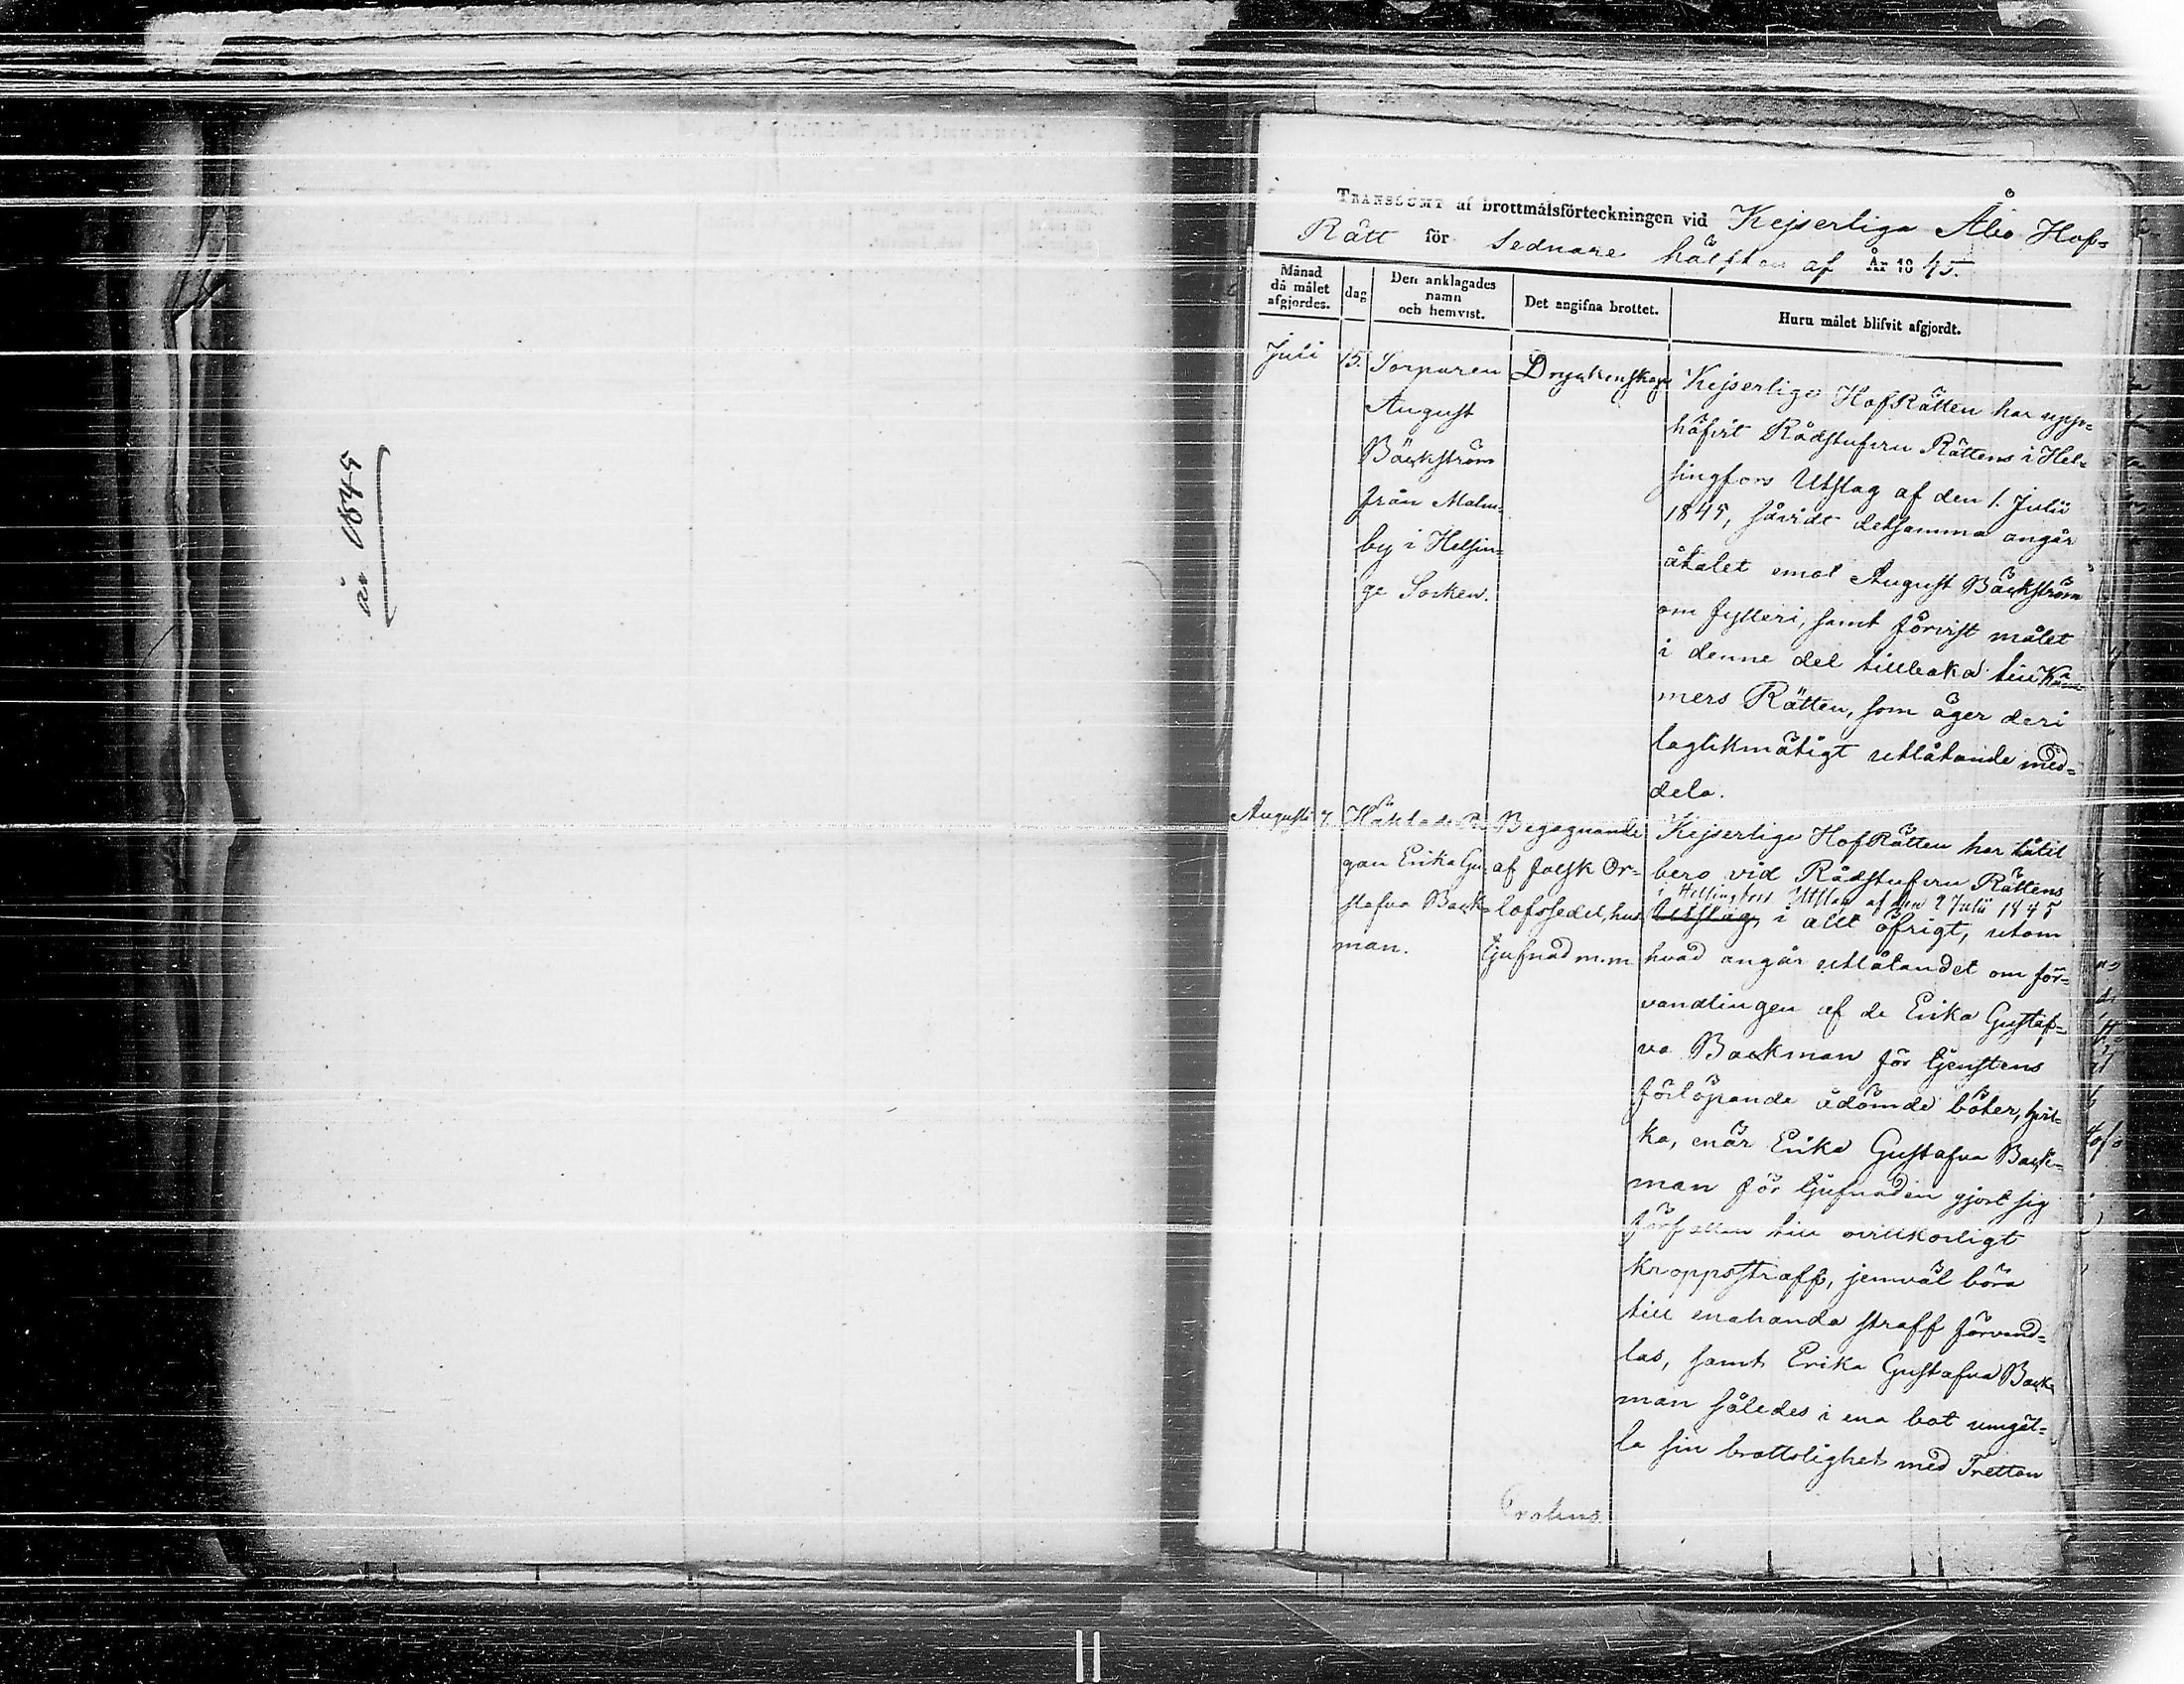 år 1845
TRANSSUMT af brottmålsförteckningen vid Kejserliga Åbo Hof=
Rätt för sednare hälften af År 1845.
Månad då målet afgjordes.
dag
Den anklagades namn och hemvist.
Det angifna brottet.
Huru målet blifvit afgjordt.
Juli 15.
Torparen
August
Bäckström
från Malm=
by i Helsin=
ge Socken.
Dryckenskap
Kejserliga HofRätten har upp=
häfvit Rådstufvu Rättens i Hel=
singfors Utslag af den 1. Julii
1845, såvidt detsamma angår
åtalet emot August Bäckström
om fylleri, samt förvist målet
i denne del tillbaka till Käm=
ners Rätten, som äger deri
laglikmätigt utlåtande med=
dela.
Augusti 7.
Häktade Pi=
gan Erika Gu=
stafva Back=
man.
Begagnande
af falsk Or=
lofssedel, hus
tjufnad m.m
Kejserliga HofRätten har låtit
bero vid Rådstufvu Rättens
i Helsingfors Utslag af den 2 Julii 1845
Utslag, i allt öfrigt, utom
hvad angår utlåtandet om för=
vandlingen af de Erika Gustaf=
va Backman för tjenstens
förlöpande ådömde böter, hvil=
ka, enär Erika Gustafva Back=
man för tjufnaden gjort sig
förfallen till ovillkorligt
kroppsstraff, jemväl böra
till enahanda straff förvand=
las, samt Erika Gustafva Back=
man således i ena bot umgäl=
la sin brottslighet med Tretton